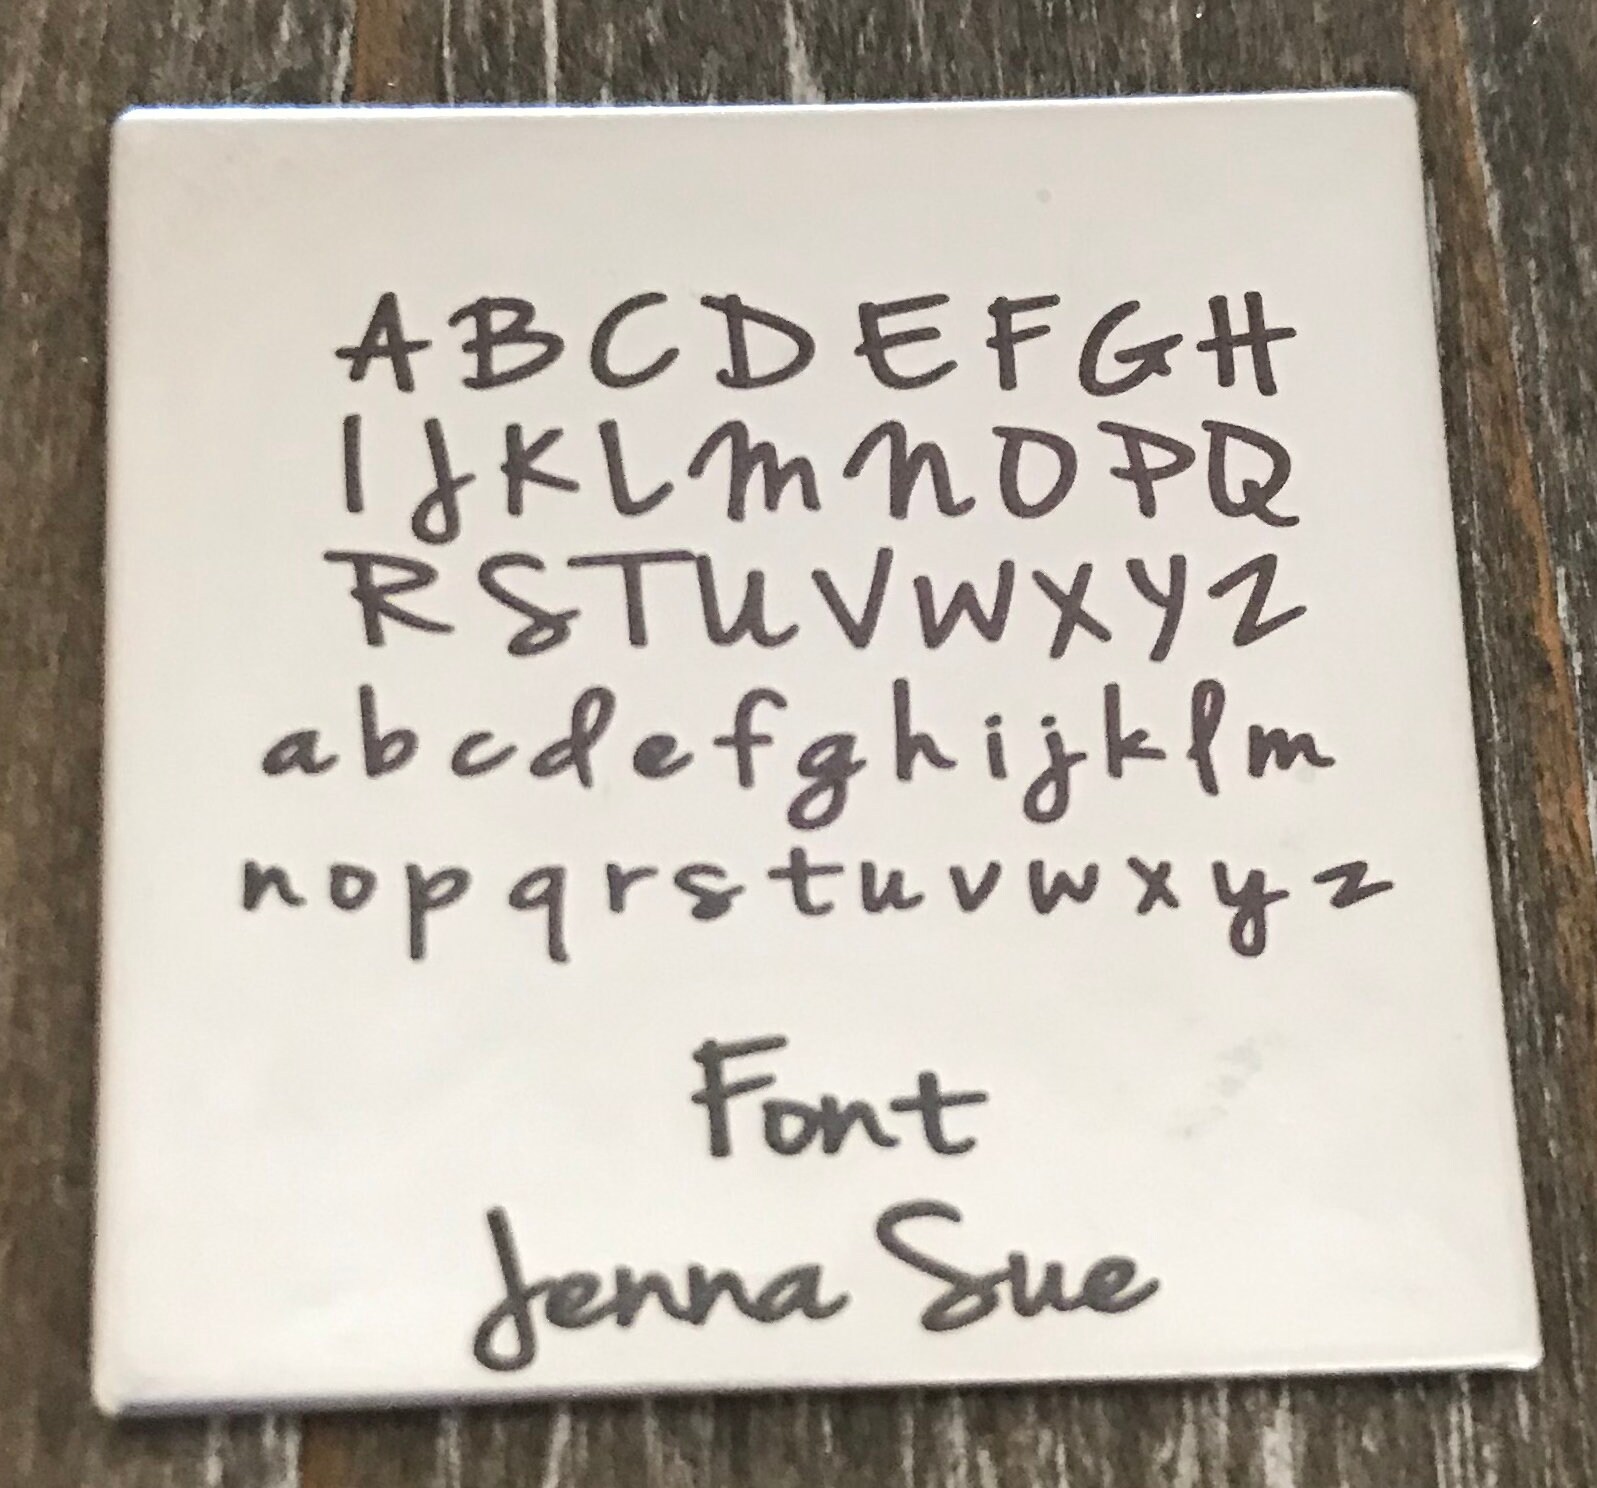 A B C D E F G H
I J K L M N O P Q
R S T U V W X Y Z
a b c d e f g h i j k l m
n o p q r s t u v w x y z
Font
Jenna Sue